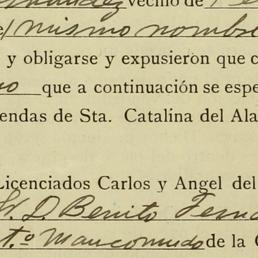 vecino de
mismo nombre
y obligarse y expusieron que
que a continuación se espe
endas de Sta. Catalina del Ala
Licenciados Carlos y Angel del
D. Benito Fern
to Mancomunado de la